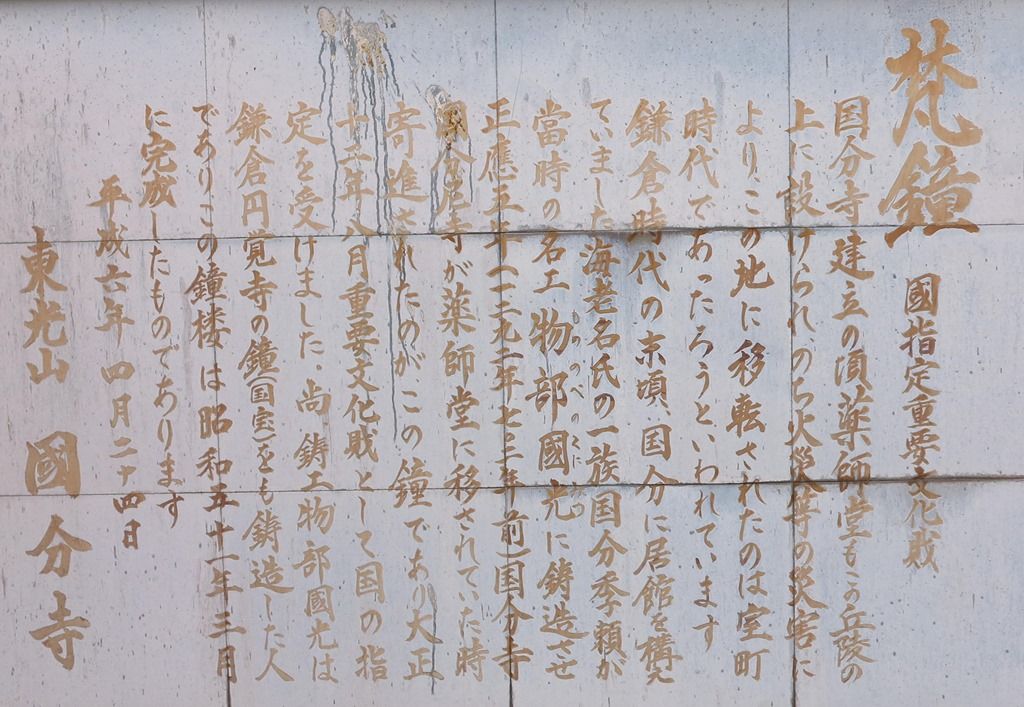 梵鐘
國指定重要文化財
国分寺建立の頃薬師堂もこの丘陵の
上に設けられのち火災等の災害に
よりこの地に移転されたのは室町
時代であったろうといわれています
鎌倉時代の末頃、国分に居館を構え
ていました海老名氏の一族国分季頼が
當時の名工物部國光に鋳造させ
もののべのくにみつ
正應五年(一二九二年七〇二年前)国分寺
國分尼寺が薬師堂に移されていた時
寄進されたのが、この鐘であり大正
十二年八月重要文化財として国の指
定を受けました。尚鋳工物部國光は
鎌倉円覚寺の鐘(国宝)をも鋳造した人
でありこの鐘楼は昭和五十一年三月
に完成したものであります
平成六年四月二十四日
東光山 國分寺